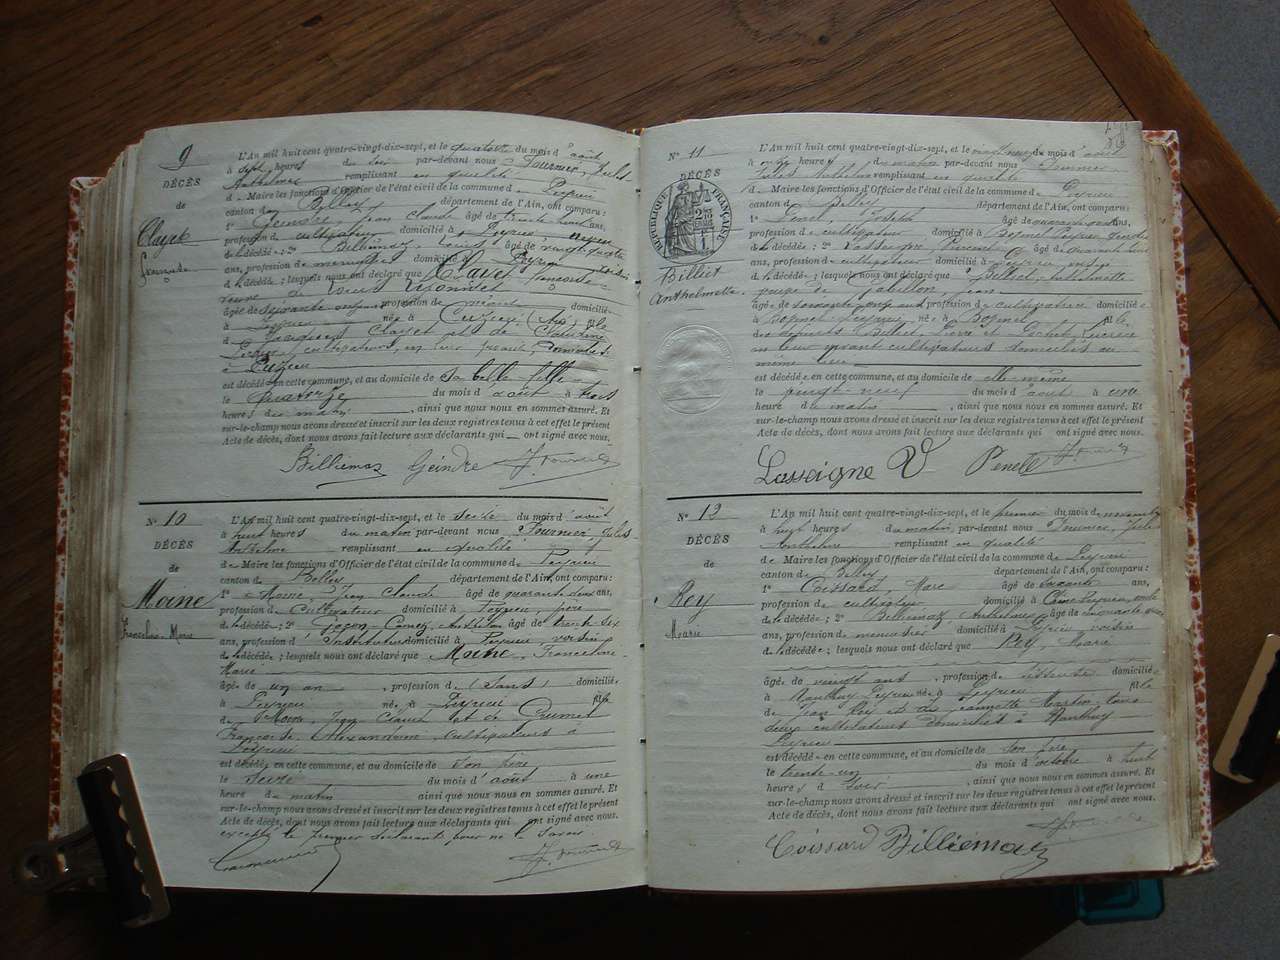 9
DÉCÈS
de
Clayet
L'An mil huit cent quatre-vingt-dix-sept, et le quatorze du mois d'août
à sept heures du soir par-devant nous Fournier, Jules
Anthelme remplissant en qualité
de Maire les fonctions d'Officier de l'état civil de la commune de Peyrieu
canton de Belley département de l'Ain, ont comparu:
1° Geindre Jean Claude âgé de trente huit ans,
profession de cultivateur domicilié à Peyrieu
de la décédée; 2° Billiemaz, Louis âgé de
ans, profession de menuisier domicilié à Peyrieu
de la décédée; lesquels nous ont déclaré que Clayet Françoise
veuve de Louis
âgée de soixante profession de domiciliée
à Peyrieu née à Cuzieu (Ain) fille
de Clayet et de Claudine
cultivateurs, en leur vivant, domiciliés
à Cuzieu
est décédée en cette commune, et au domicile de sa belle fille
le quatorze du mois d'août à trois
heures du matin, ainsi que nous nous en sommes assuré. Et
sur-le-champ nous avons dressé et inscrit sur les deux registres tenus à cet effet le présent
Acte de décès, dont nous avons fait lecture aux déclarants qui ont signé avec nous.
Billiemaz Geindre J. Fournier
N° 10
DÉCÈS
de
Moine
Franceline-Marie
L'An mil huit cent quatre-vingt-dix-sept, et le seize du mois d'août
à huit heures du matin par-devant nous Fournier, Jules
Anthelme remplissant en qualité
de Maire les fonctions d'Officier de l'état civil de la commune de Peyrieu
canton de Belley département de l'Ain, ont comparu:
1° Moine Jean Claude âgé de quarante deux ans,
profession de Cultivateur domicilié à Peyrieu, père
de la décédée; 2° Anthelme âgé de trente-six
ans, profession d'Instituteur domicilié à Peyrieu, voisin
de la décédée; lesquels nous ont déclaré que Moine, Franceline
Marie
âgée de un an, profession de (sans) domiciliée
à Peyrieu née à Peyrieu fille
de Moine, Jean Claude et de Brumet
Françoise, Alexandrine, cultivateurs à
Peyrieu
est décédée en cette commune, et au domicile de son père
le seize du mois d'août à une
heure du matin ainsi que nous nous en sommes assuré. Et
sur-le-champ nous avons dressé et inscrit sur les deux registres tenus à cet effet le présent
Acte de décès, dont nous avons fait lecture aux déclarants qui ont signé avec nous.
excepté le premier déclarant pour ne le savoir.
J. Fournier
N° 11
DÉCÈS
RÉPUBLIQUE FRANÇAISE
Billiet
Anthelmette
L'An mil huit cent quatre-vingt-dix-sept, et le vingt neuf du mois d'août
à onze heures du matin par-devant nous Fournier
Jules Anthelme remplissant en qualité
de Maire les fonctions d'Officier de l'état civil de la commune de Peyrieu
canton de Belley département de l'Ain, ont comparu:
1° Penel, Joseph âgé de quarante ans,
profession de cultivateur domicilié à
de la décédée; 2° Lassaigne Vincent âgé de
ans, profession de cultivateur domicilié à Peyrieu
de la décédée; lesquels nous ont déclaré que Billiet, Anthelmette
âgée de soixante onze ans, profession de cultivatrice domiciliée
à née à fille
des défunts Billiet, Pierre et
en leur vivant cultivateurs domiciliés au
même lieu
est décédée en cette commune, et au domicile de elle-même
le vingt-neuf du mois d'août à une
heure du matin, ainsi que nous nous en sommes assuré. Et
sur-le-champ nous avons dressé et inscrit sur les deux registres tenus à cet effet le présent
Acte de décès, dont nous avons fait lecture aux déclarants qui ont signé avec nous.
Lassaigne V Penel J. Fournier
N° 12
DÉCÈS
de
Rey
Marie
L'An mil huit cent quatre-vingt-dix-sept, et le premier du mois de novembre
à huit heures du matin, par-devant nous Fournier, Jules
Anthelme remplissant en qualité
de Maire les fonctions d'Officier de l'état civil de la commune de Peyrieu
canton de Belley département de l'Ain, ont comparu:
1° Coissard, Marc âgé de soixante ans,
profession de cultivateur domicilié à
de la décédée; 2° Billiemaz Anthelme âgé de
ans, profession de menuisier domicilié à Peyrieu voisin
de la décédée; lesquels nous ont déclaré que Rey, Marie
âgée de vingt ans, profession de tisseuse domiciliée
à Nanthuy Peyrieu née à Peyrieu fille
de Jean Rey et de Jeannette tous
deux cultivateurs domiciliés à Nanthuy
Peyrieu
est décédée en cette commune, et au domicile de son père
le trente-un du mois d'octobre à huit
heures du soir, ainsi que nous nous en sommes assuré. Et
sur-le-champ nous avons dressé et inscrit sur les deux registres tenus à cet effet le présent
Acte de décès, dont nous avons fait lecture aux déclarants qui ont signé avec nous.
J. Fournier
Coissard Billiemaz